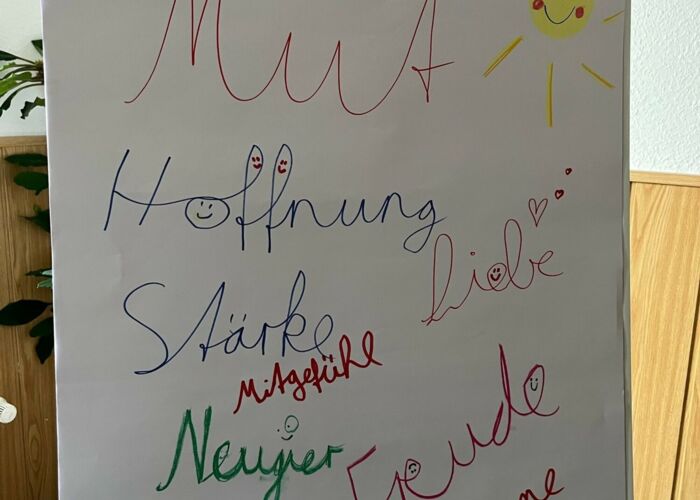 Mut
Hoffnung
Liebe
Stärke
Mitgefühl
Freude
Neugier